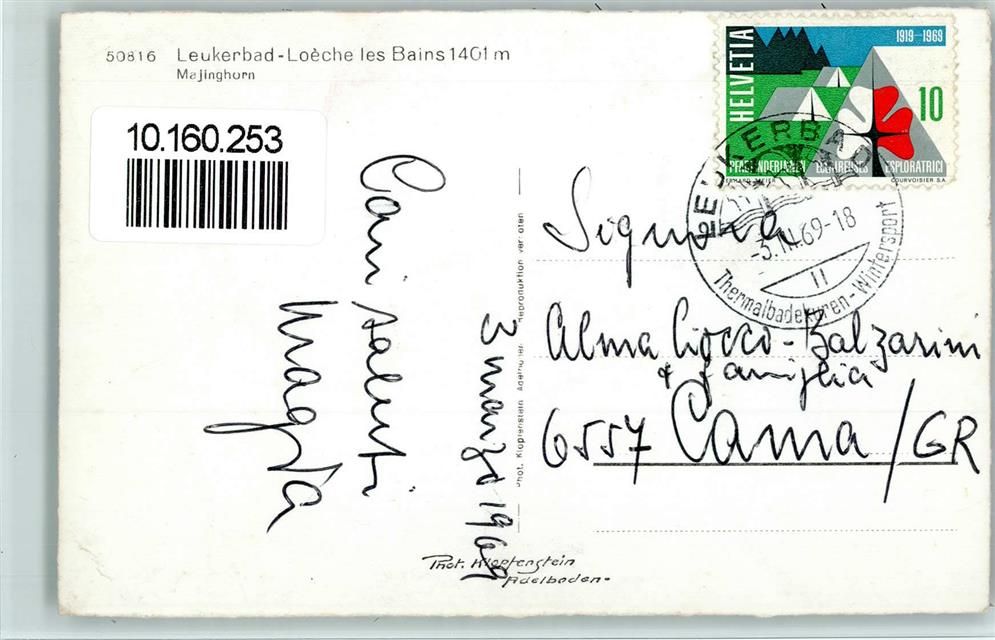 50816 Leukerbad-Loèche les Bains 1401 m
Majinghorn
10.160.253
HELVETIA
1919-1969
10
PFADFINDERINNEN ECLAIREUSES ESPLORATRICI
COURVOISIER S.A.
LEUKERBAD
-3.III.69-18
II
Thermalbadekuren-Wintersport
Cari saluti
Magda
3 marzo 1969
Phot. Klopfenstein Adelboden Reproduktion verboten
Signora
Alma Ciocco-Balzarini
+ famiglia
6557 Cama/GR
Phot. Klopfenstein
Adelboden